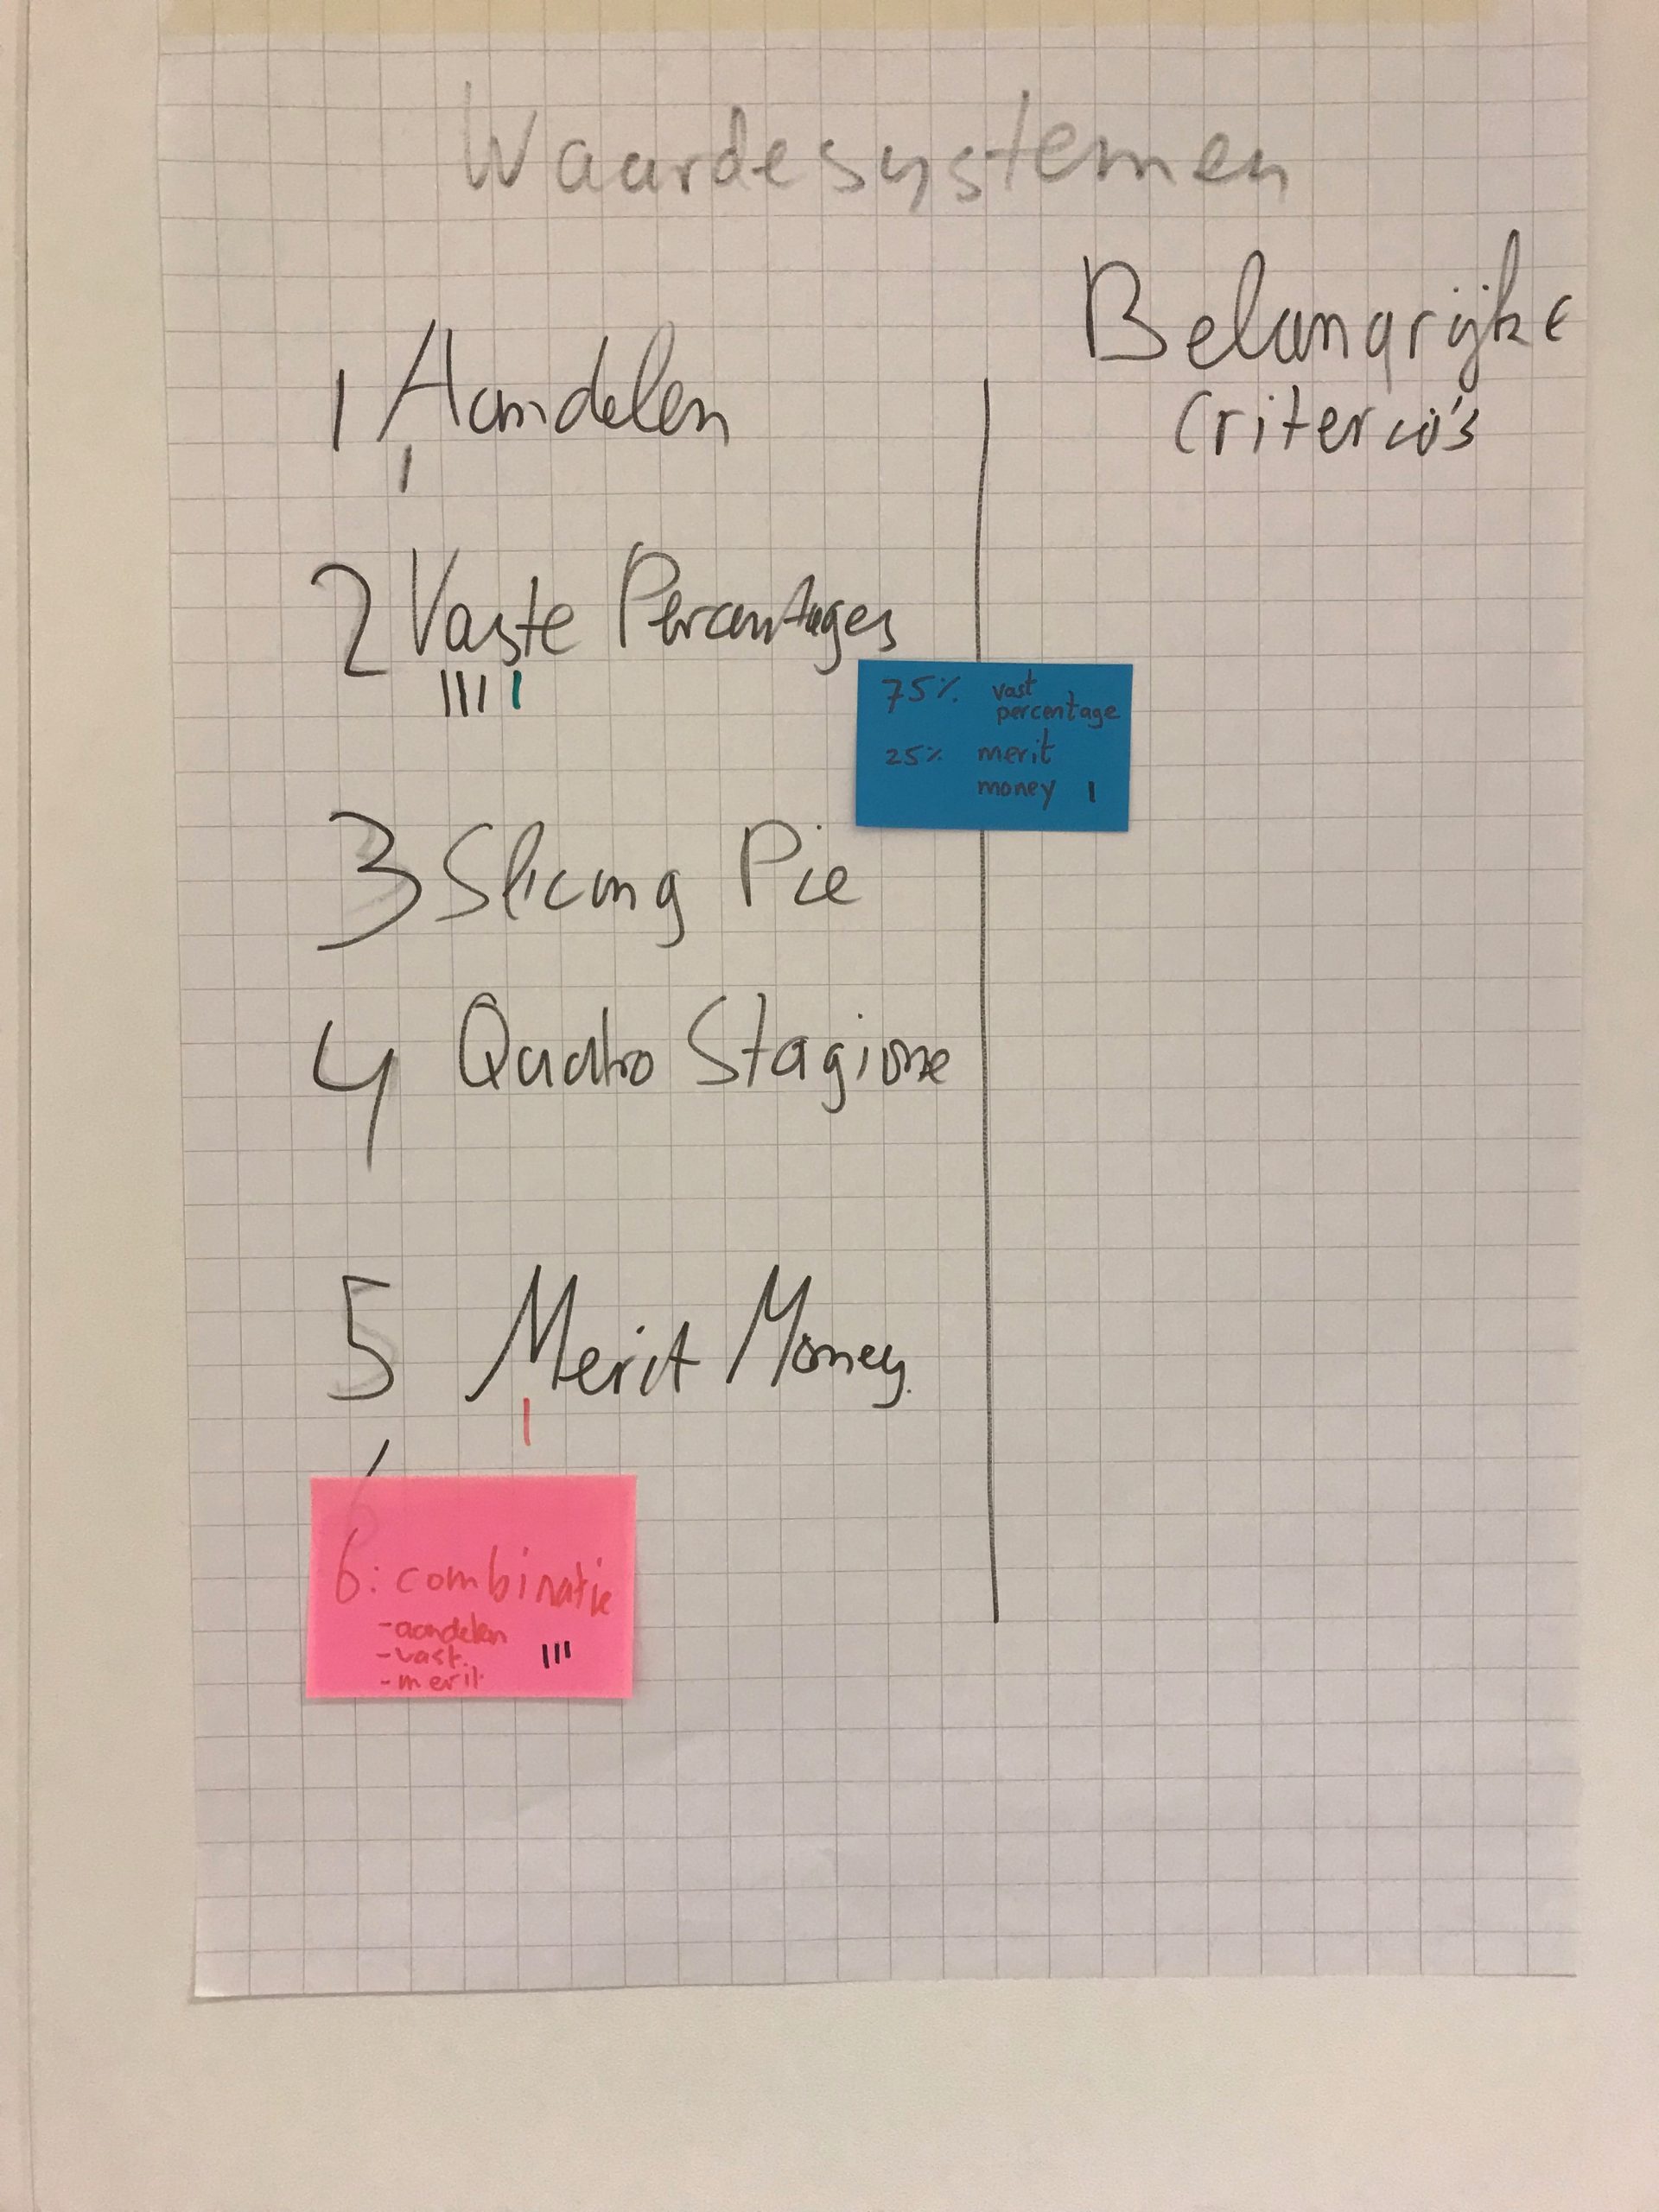 Waardesystemen
Belangrijke
Criteria's
1 Aandelen
I
2 Vaste Percentages
IIII I
75% vast
percentage
25% merit
money I
3 Slicing Pie
4 Quatro Stagione
5 Merit Money.
I
6
6: combinatie
- aandelen
- vast.
- merit
III